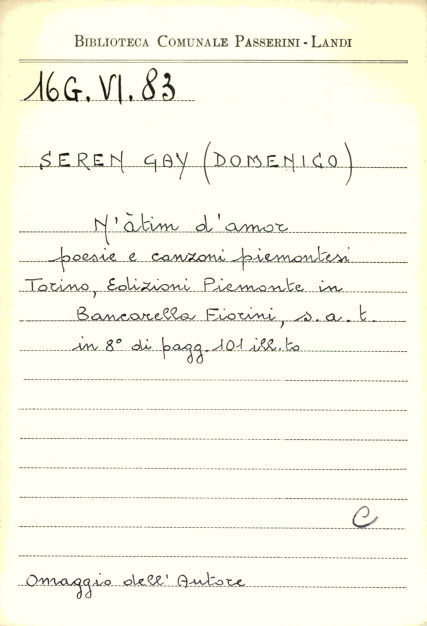 BIBLIOTECA COMUNALE PASSERINI - LANDI
16G. VI. 83
SEREN GAY (DOMENICO)
N'àtim d'amor
poesie e canzoni piemontesi
Torino, Edizioni Piemonte in
Bancarella Fiorini, s. a. t.
in 8° di pagg. 101 ill.to
C
Omaggio dell'Autore